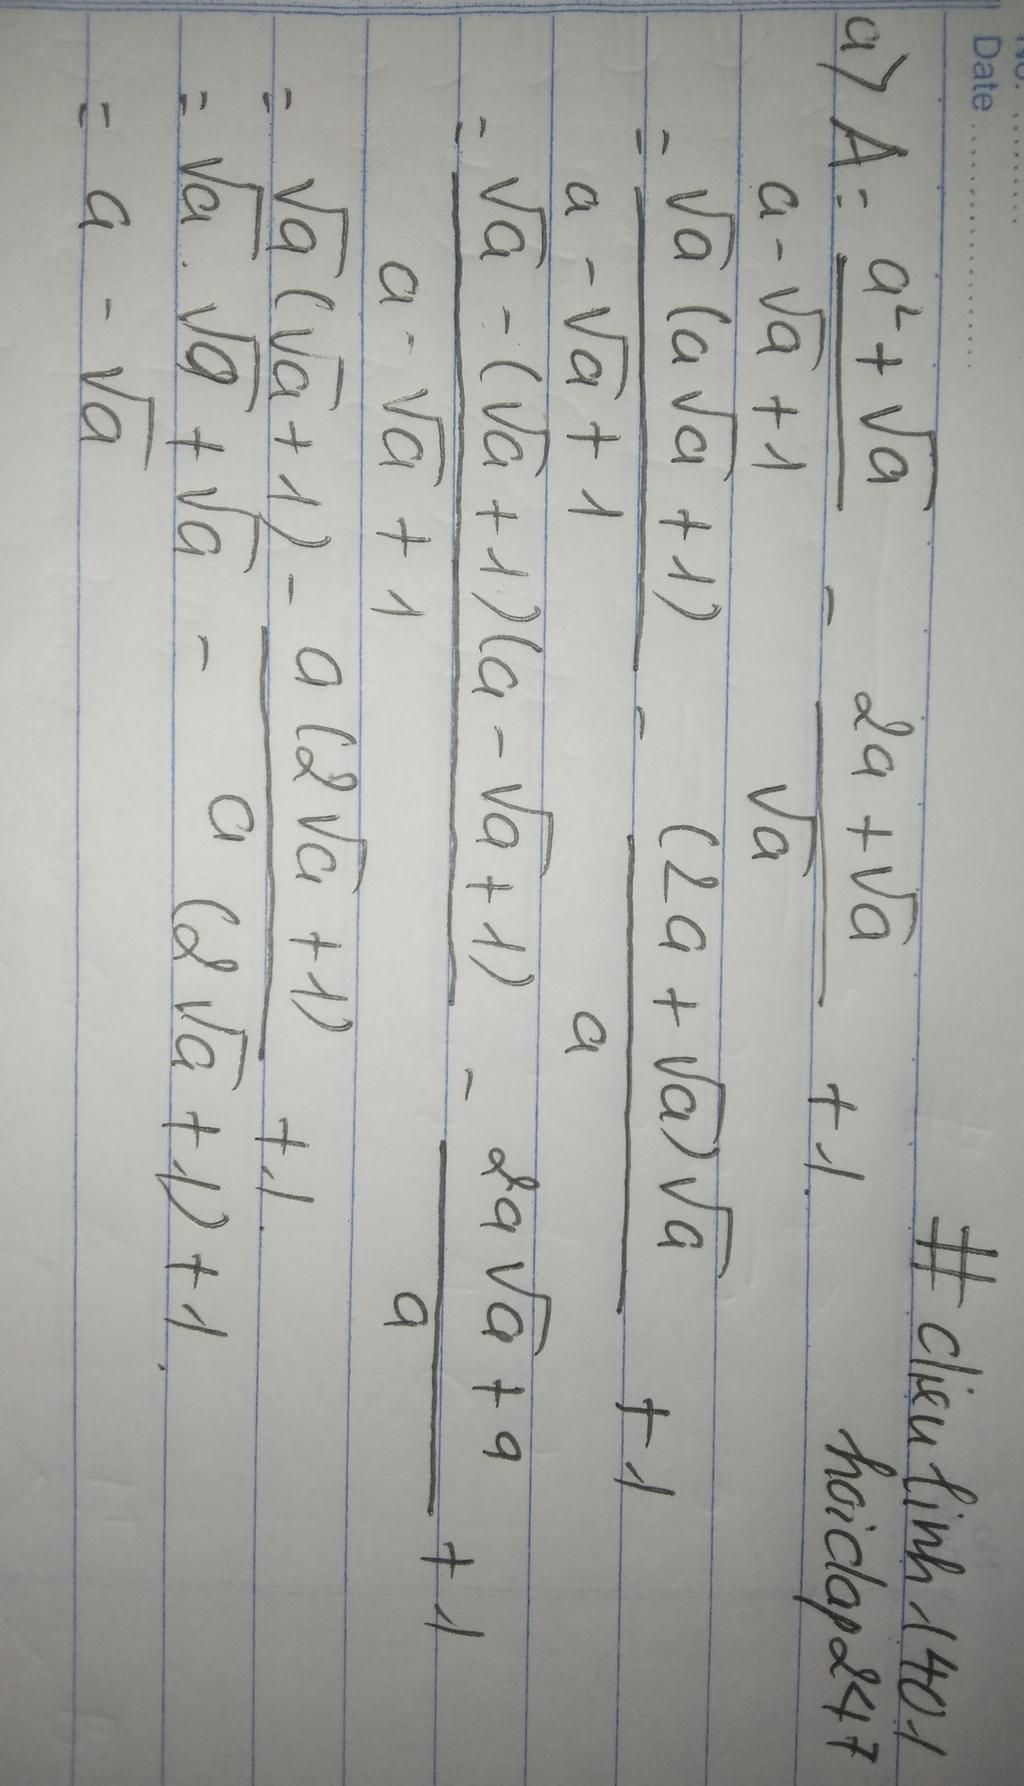 No. ..........
Date ..........................
# dieulinh1401
hoidap247
a) A = a² + √a / a - √a + 1 - 2a + √a / √a + 1.
= √a (a√a + 1) / a - √a + 1 - (2a + √a)√a / a + 1
= √a - (√a + 1)(a - √a + 1) / a - √a + 1 - 2a√a + a / a + 1
= √a (√a + 1) - a (2√a + 1) / a + 1.
= √a . √a + √a - (2√a + 1) + 1.
= a - √a